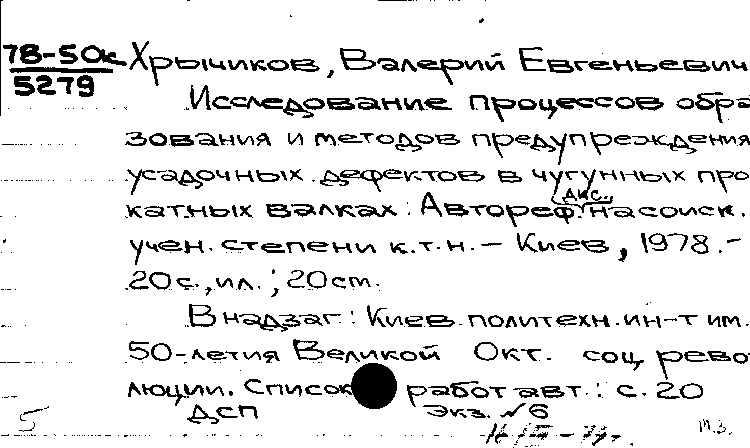 78-50к
5279
Хрычиков, Валерий Евгеньевич
Исследование процессов обра
зования и методов предупреждения
усадочных дефектов в чугунных про
дис.
катных валках: Автореф. на соиск.
учен. степени к.т.н. – Киев, 1978. –
20с., ил.; 20см.
В надзаг: Киев. политехн. ин-т им.
50-летия Великой Окт. соц рево
люции. Список работ авт.: с. 20
ДСП Экз. №6
5
м.з.